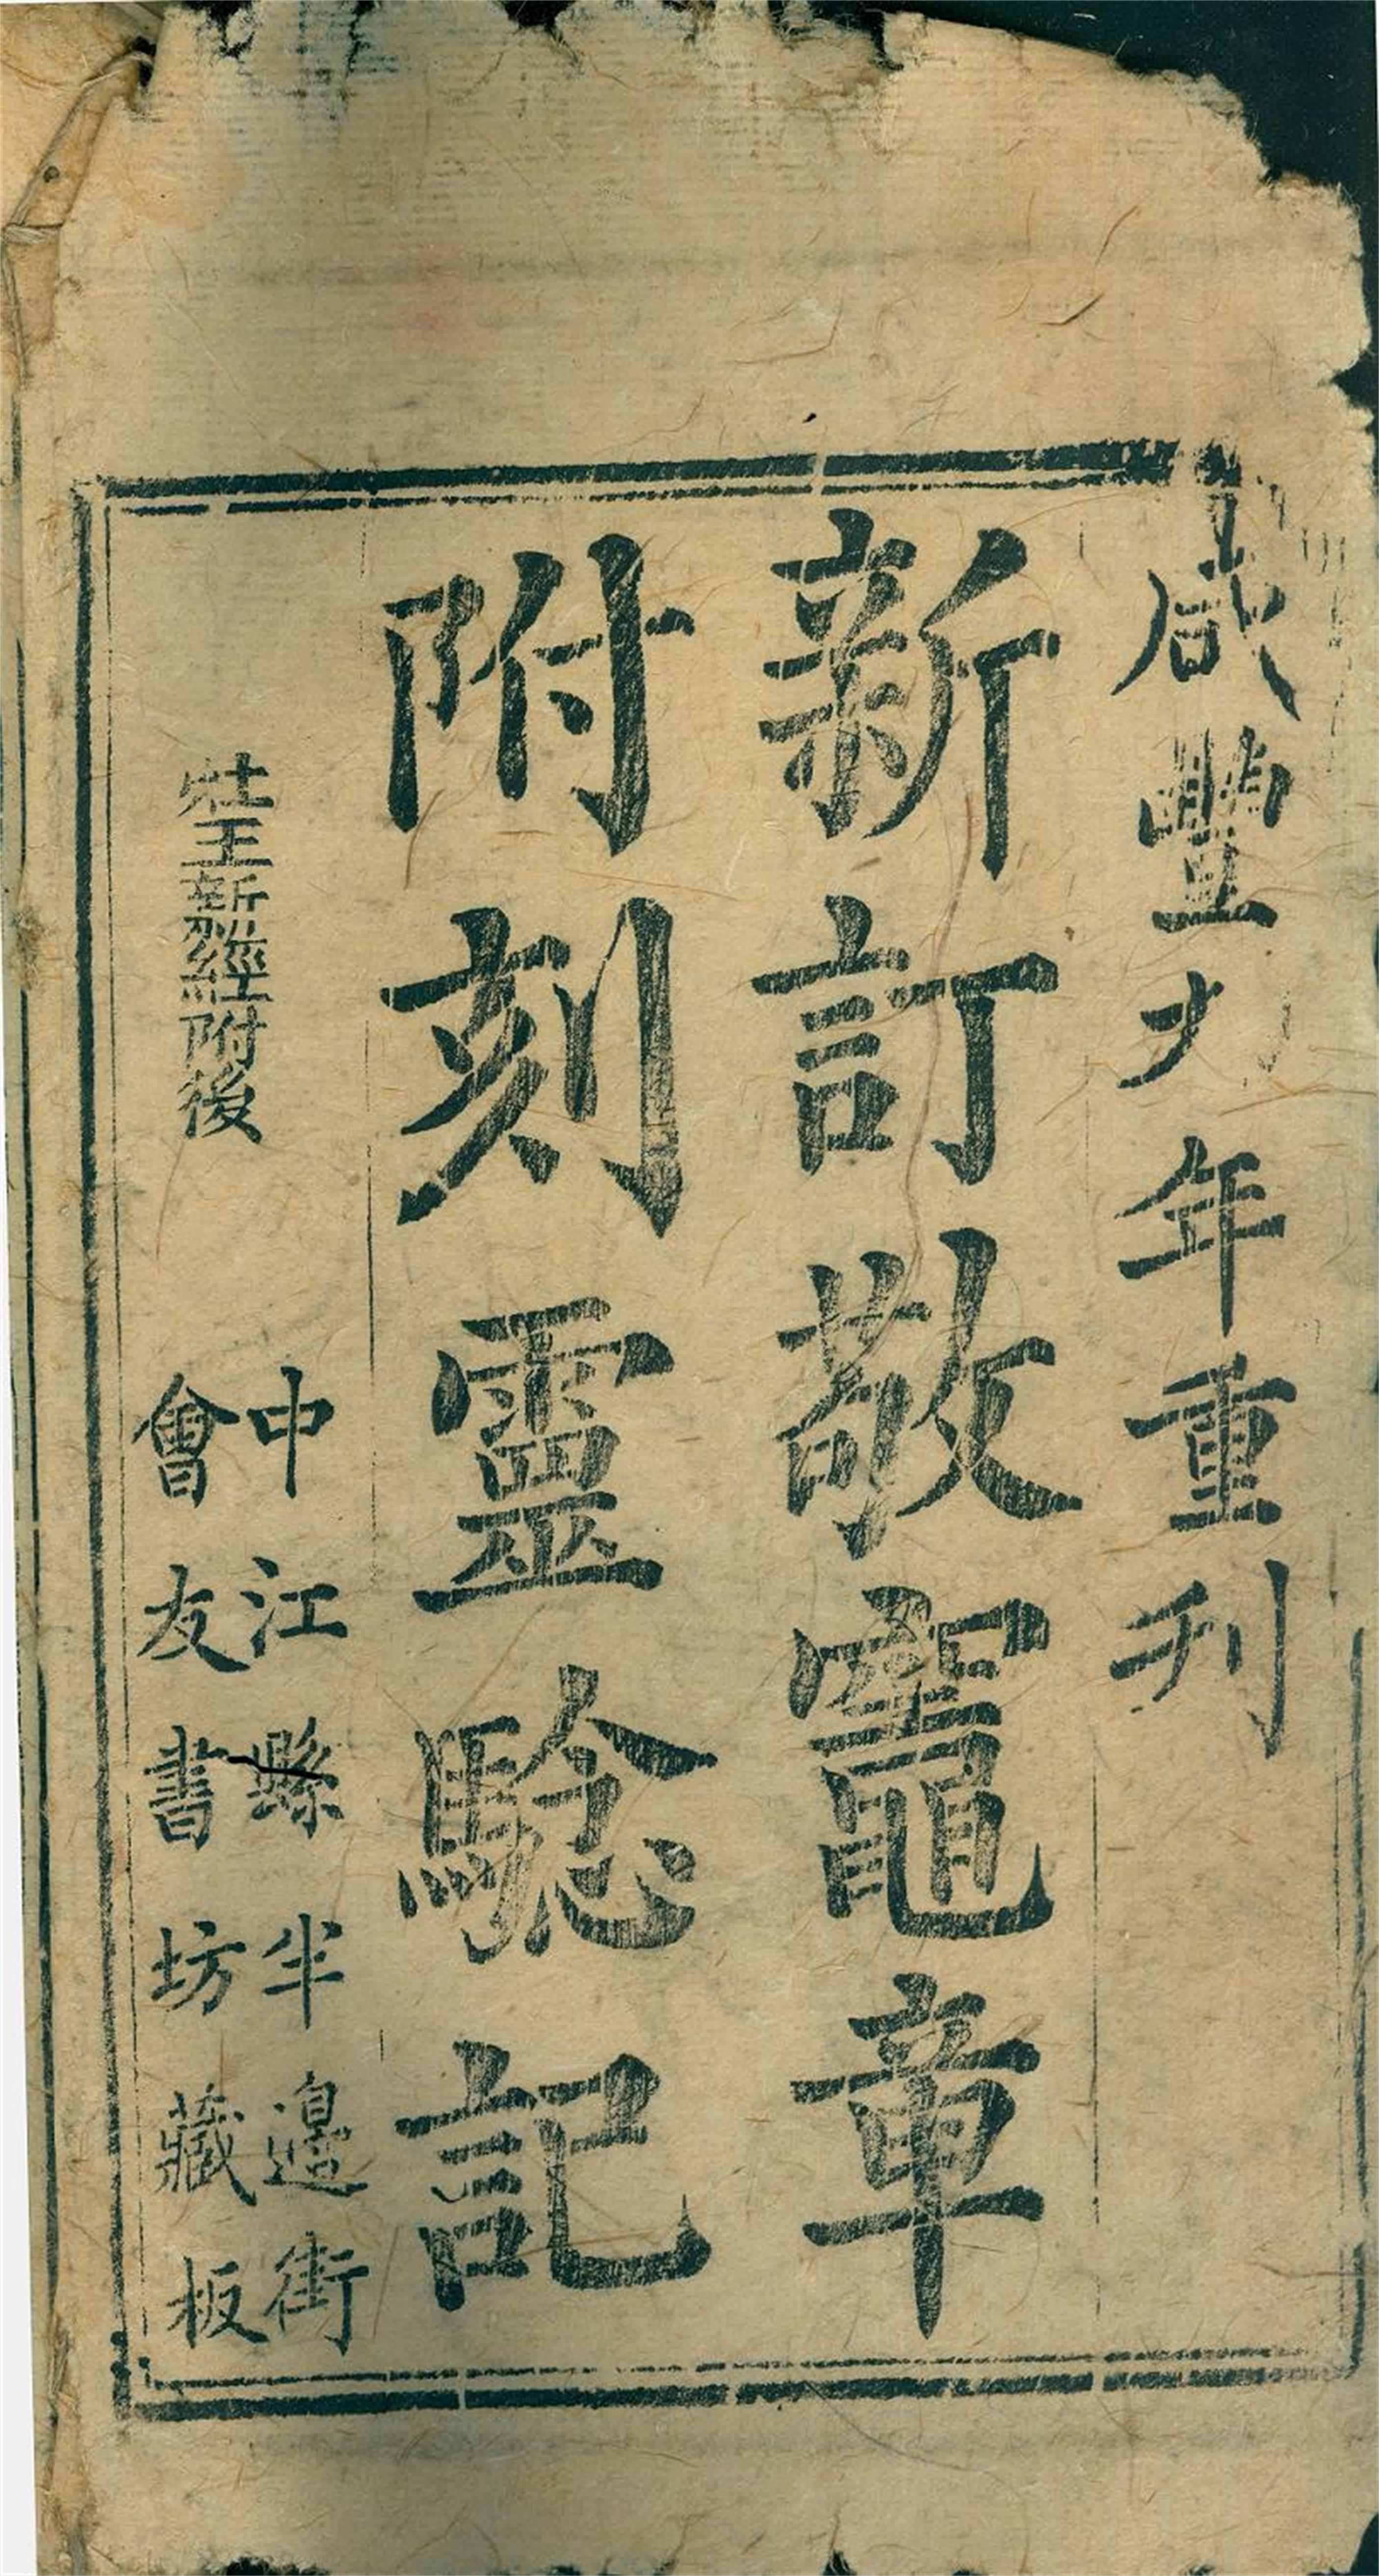 咸豐九年重刊
新訂敬竈章
附刻靈騐記
灶王新經附後
中江縣半邊街
會友書坊藏板